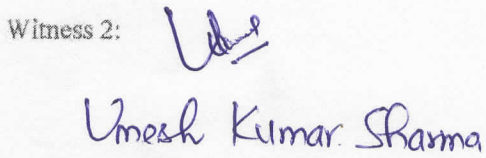 Witness 2:
Umesh Kumar Sharma